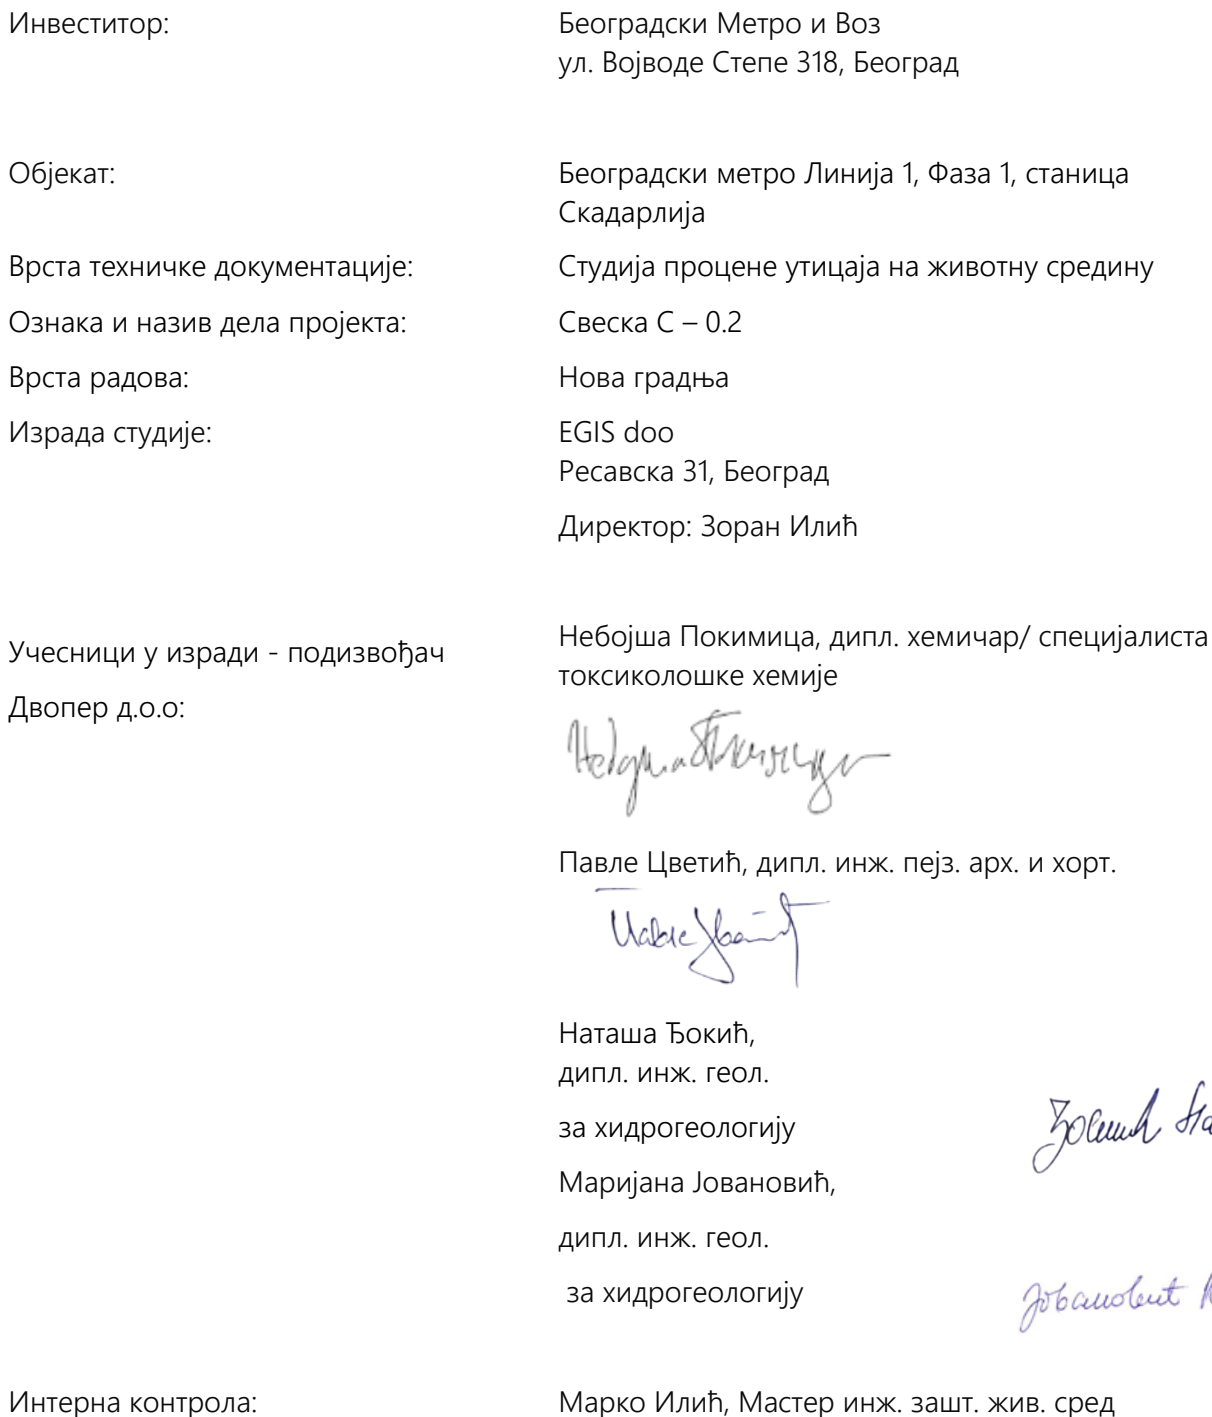 Инвеститор:
Београдски Метро и Воз
ул. Војводе Степе 318, Београд
Објекат:
Београдски метро Линија 1, Фаза 1, станица
Скадарлија
Врста техничке документације:
Студија процене утицаја на животну средину
Ознака и назив дела пројекта:
Свеска С – 0.2
Врста радова:
Нова градња
Израда студије:
EGIS doo
Ресавска 31, Београд
Директор: Зоран Илић
Учесници у изради - подизвођач
Двопер д.о.о:
Небојша Покимица, дипл. хемичар/ специјалиста
токсиколошке хемије
Павле Цветић, дипл. инж. пејз. арх. и хорт.
Наташа Ђокић,
дипл. инж. геол.
за хидрогеологију
Маријана Јовановић,
дипл. инж. геол.
за хидрогеологију
Јовановић
Интерна контрола:
Марко Илић, Мастер инж. зашт. жив. сред